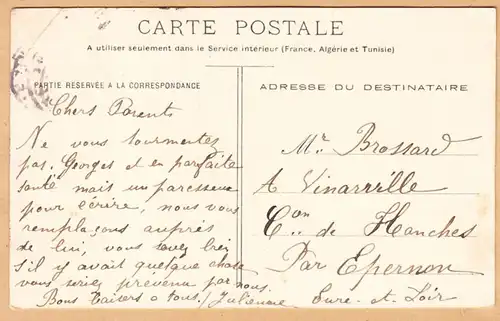 CARTE POSTALE
A utiliser seulement dans le Service intérieur (France, Algérie et Tunisie)
PARTIE RÉSERVÉE A LA CORRESPONDANCE
Chers Parents
Ne vous tourmentez
pas. Georges et en parfaite
santé mais un paresseux
pour écrire, nous vous
remplaçons auprès
de lui, vous savez bien
s'il y avait quelque chose
vous seriez prevenu par nous.
Bons baisers a tous / Julienne
ADRESSE DU DESTINATAIRE
Mr. Brossard
A Vinarville
Con de Hanches
Par Epernon
Eure-et-Loir